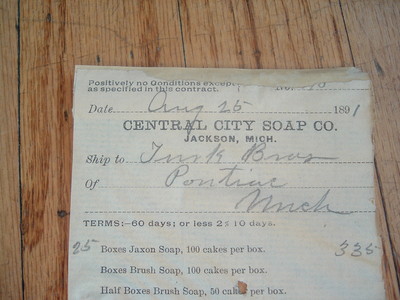 Positively no Conditions except
as specified in this contract. No.
Date Aug 25 1891
CENTRAL CITY SOAP CO.
JACKSON, MICH.
Ship to Turk Bros
Of Pontiac
Mich
TERMS:—60 days; or less 2% 10 days.
25 Boxes Jaxon Soap, 100 cakes per box. 335
Boxes Brush Soap, 100 cakes per box.
Half Boxes Brush Soap, 50 cakes per box.